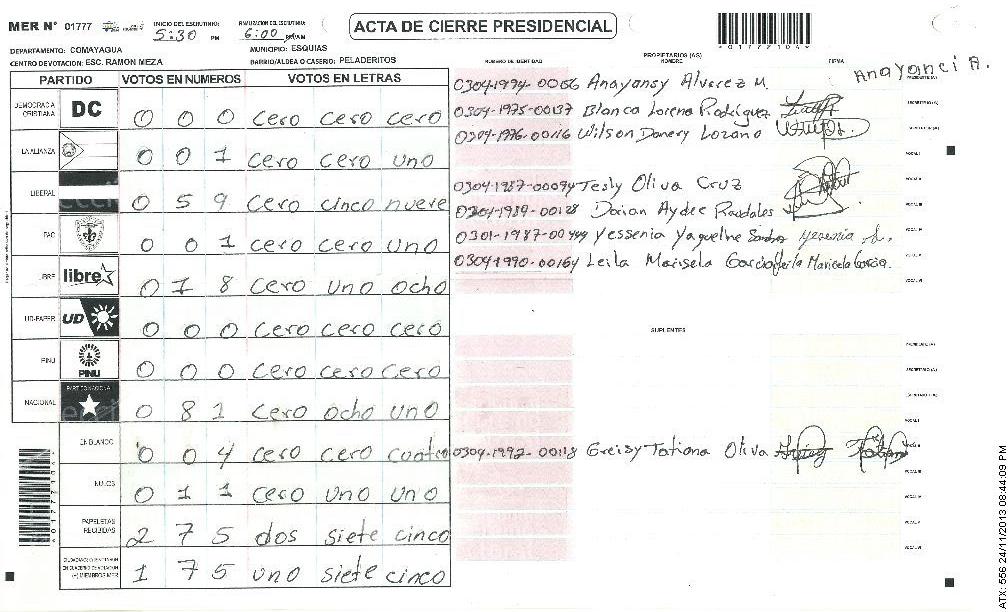 MER N° 01777 INICIO DEL ESCRUTINIO: 5:30 PM FINALIZACION DEL ESCRUTINIO: 6:00 PM
ACTA DE CIERRE PRESIDENCIAL
DEPARTAMENTO: COMAYAGUA MUNICIPIO: ESQUIAS
CENTRO DE VOTACION: ESC. RAMON MEZA BARRIO/ALDEA O CASERIO: PELADERITOS
PARTIDO VOTOS EN NUMEROS VOTOS EN LETRAS
DEMOCRACIA CRISTIANA DC 0 0 0 cero cero cero
LA ALIANZA 0 0 1 cero cero uno
LIBERAL 0 5 9 cero cinco nueve
PAC 0 0 1 cero cero uno
LIBRE libre 0 1 8 cero uno ocho
UD-FAPER UD 0 0 0 cero cero cero
PINU PINU 0 0 0 cero cero cero
NACIONAL PARTIDO NACIONAL 0 8 1 cero ocho uno
EN BLANCO 0 0 4 cero cero cuatro
NULOS 0 1 1 cero uno uno
PAPELETAS RECIBIDAS 2 7 5 dos siete cinco
(+) MIEMBROS MER 1 7 5 uno siete cinco
NUMERO DE IDENTIDAD PROPIETARIOS (AS) NOMBRE FIRMA
0304-1994-00066 Anayansy Alverez M. Anayanci A. PRESIDENTE (A)
0304-1975-00137 Blanca Lorena Rodriguez SECRETARIO (A)
0304-1976-00116 Wilson Danery Lozano
VOCAL I
0304-1987-00094 Tesly Oliva Cruz
0304-1989-00128 Dorian Aydee Raudales
0301-1987-00449 Yessenia Yaqueline Yesenia
0304-1990-00164 Leila Marisela Garcia Leila Maricela Garcia.
SUPLENTES
PRESIDENTE (A)
SECRETARIO (A)
0304-1992-00118 Greisy Tatiana Oliva
*01777106*
ATX: 556 24/11/2013 08:44:09 PM